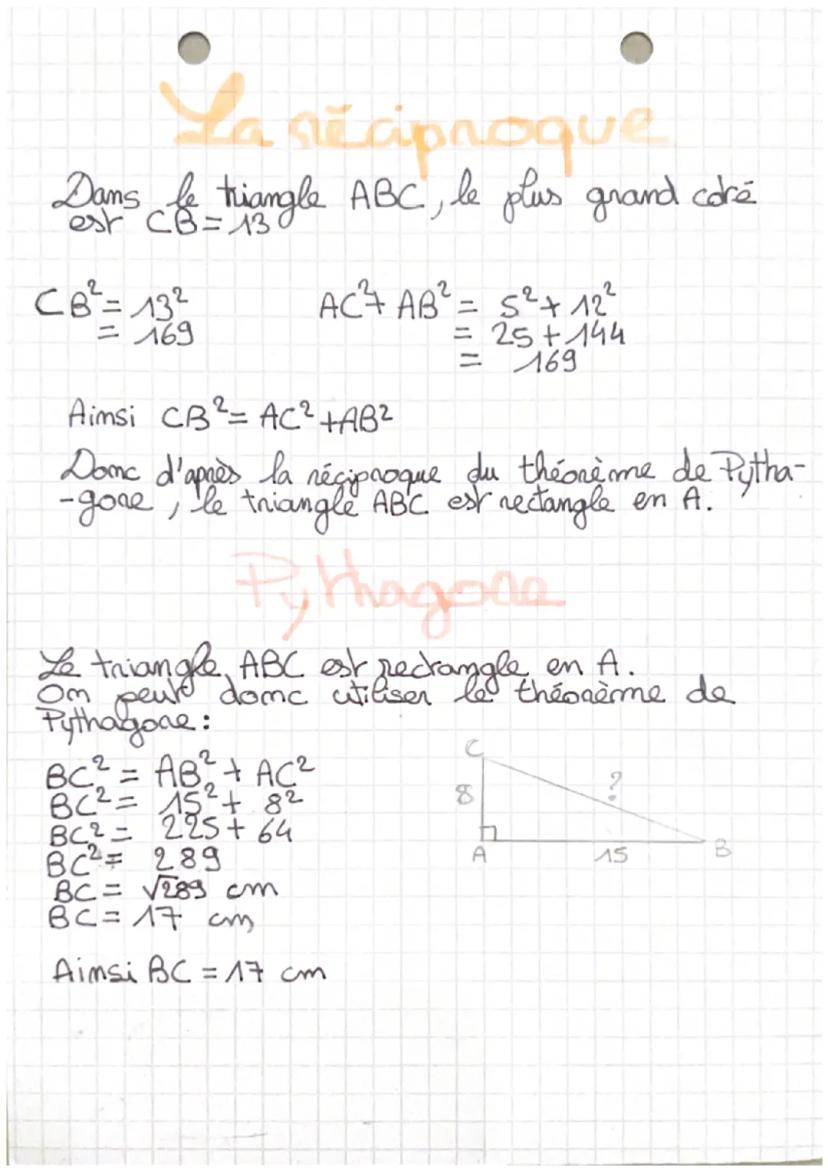 La réciproque
Dans le triangle ABC, le plus grand côté
est CB = 13
CB² = 13²
= 169
AC² + AB² = 5² + 12²
= 25 + 144
= 169
Ainsi CB² = AC² + AB²
Donc d'après la réciproque du théorème de Pytha-
-gore, le triangle ABC est rectangle en A.
Pythagore
Le triangle ABC est rectangle en A.
On peut donc utiliser le théorème de
Pythagore :
BC² = AB² + AC²
BC² = 15² + 8²
BC² = 225 + 64
BC² = 289
BC = √289 cm
BC = 17 cm
Ainsi BC = 17 cm
C
8
?
A
15
B